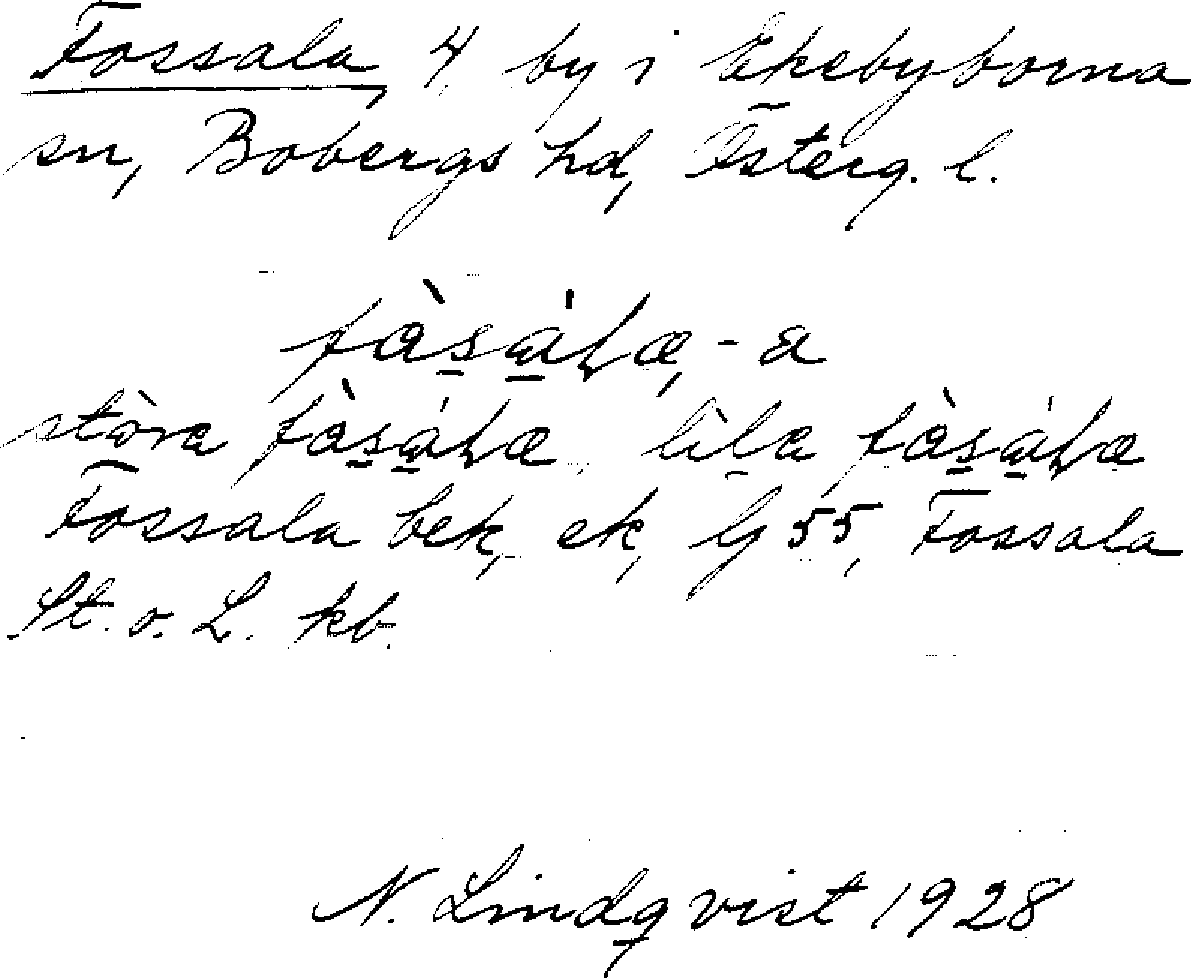 Fossala, 4, by i Ekebyborna
sn, Bobergs hd, Österg. l.
fàs̲a̲̍ɫæ, -a
stòra fàs̲a̲̍ɫæ, lìl̲a fàs̲a̲̍ɫæ
Fossala bek, ek, Gj 55, Fossala
St. o. L. kb.
N. Lindqvist 1928